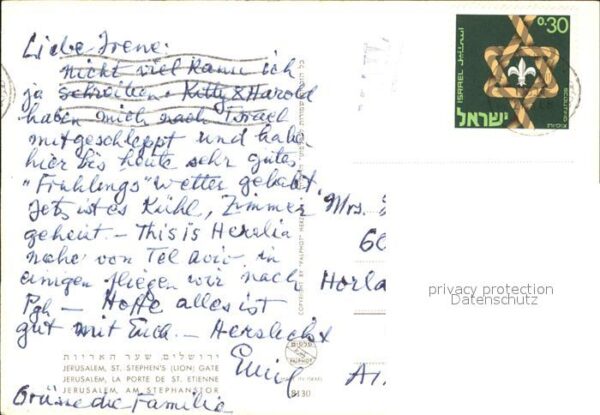 Liebe Irene:
nicht viel kann ich
ja schreiben. Kitty & Harold
haben mich nach Israel
mitgeschleppt und habe
hier bis heute sehr gutes
"Frühlings" wetter gehabt.
Jetz ist es Kühl, Zimmer
geheizt. - This is Herzlia
nahe von Tel aviv. in
einigen fliegen wir nach
Pgh - Hoffe alles ist
gut mit Euch. - Herzlichst
Emil
Grüsse die Familie
ירושלים, שער האריות
JERUSALEM, ST. STEPHEN'S (LION) GATE
JERUSALEM, LA PORTE DE ST. ETIENNE
JERUSALEM, AM STEPHANSTOR
COPYRIGHT BY "PALPHOT" HERZLIA
פלפוט
PALPHOT
MADE IN ISRAEL
8130
0.30
ISRAEL
ישראל
SCOUTING
צופיות
Mrs.
60
Horla
privacy protection
Datenschutz